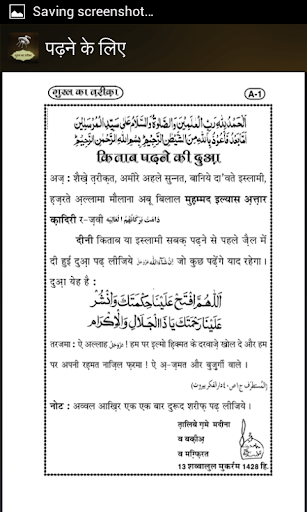 Saving screenshot...
पढ़ने के लिए
ग़ुस्ल का तरीक़ा
A-1
اَلْحَمْدُ لِلّٰهِ رَبِّ الْعٰلَمِيْنَ وَالصَّلٰوةُ وَالسَّلَامُ عَلٰى سَيِّدِ الْمُرْسَلِيْنَ
اَمَّا بَعْدُ فَاَعُوْذُ بِاللّٰهِ مِنَ الشَّيْطٰنِ الرَّجِيْمِ بِسْمِ اللّٰهِ الرَّحْمٰنِ الرَّحِيْمِ
किताब पढ़ने की दुआ़
अज़ : शैख़े त़रीक़त, अमीरे अहले सुन्नत, बानिये दा'वते इस्लामी,
ह़ज़रते अ़ल्लामा मौलाना अबू बिलाल मुह़म्मद इल्यास अ़त्तार
क़ादिरी र-ज़वी دَامَتْ بَرَكَاتُهُمُ الْعَالِيَه
दीनी किताब या इस्लामी सबक़ पढ़ने से पहले ज़ैल में
दी हुई दुआ़ पढ़ लीजिये اِنْ شَآءَ اللّٰه عَزَّوَجَلَّ जो कुछ पढ़ेंगे याद रहेगा ।
दुआ़ येह है :
اَللّٰهُمَّ افْتَحْ عَلَيْنَا حِكْمَتَكَ وَانْشُرْ
عَلَيْنَا رَحْمَتَكَ يَا ذَا الْجَلَالِ وَالْاِكْرَام
तरजमा : ऐ अल्लाह عَزَّوَجَلَّ ! हम पर इ़ल्मो ह़िक्मत के दरवाज़े खोल दे और हम
पर अपनी रह़मत नाज़िल फ़रमा ! ऐ अ़-ज़मत और बुज़ुर्गी वाले ।
(المُستطرَف ج١ص٤٠دارالفكربيروت)
नोट : अव्वल आख़िर एक एक बार दुरूद शरीफ़ पढ़ लीजिये ।
त़ालिबे ग़मे मदीना
व बक़ीअ़
व मग़्फ़िरत
13 शव्वालुल मुकर्रम 1428 हि.